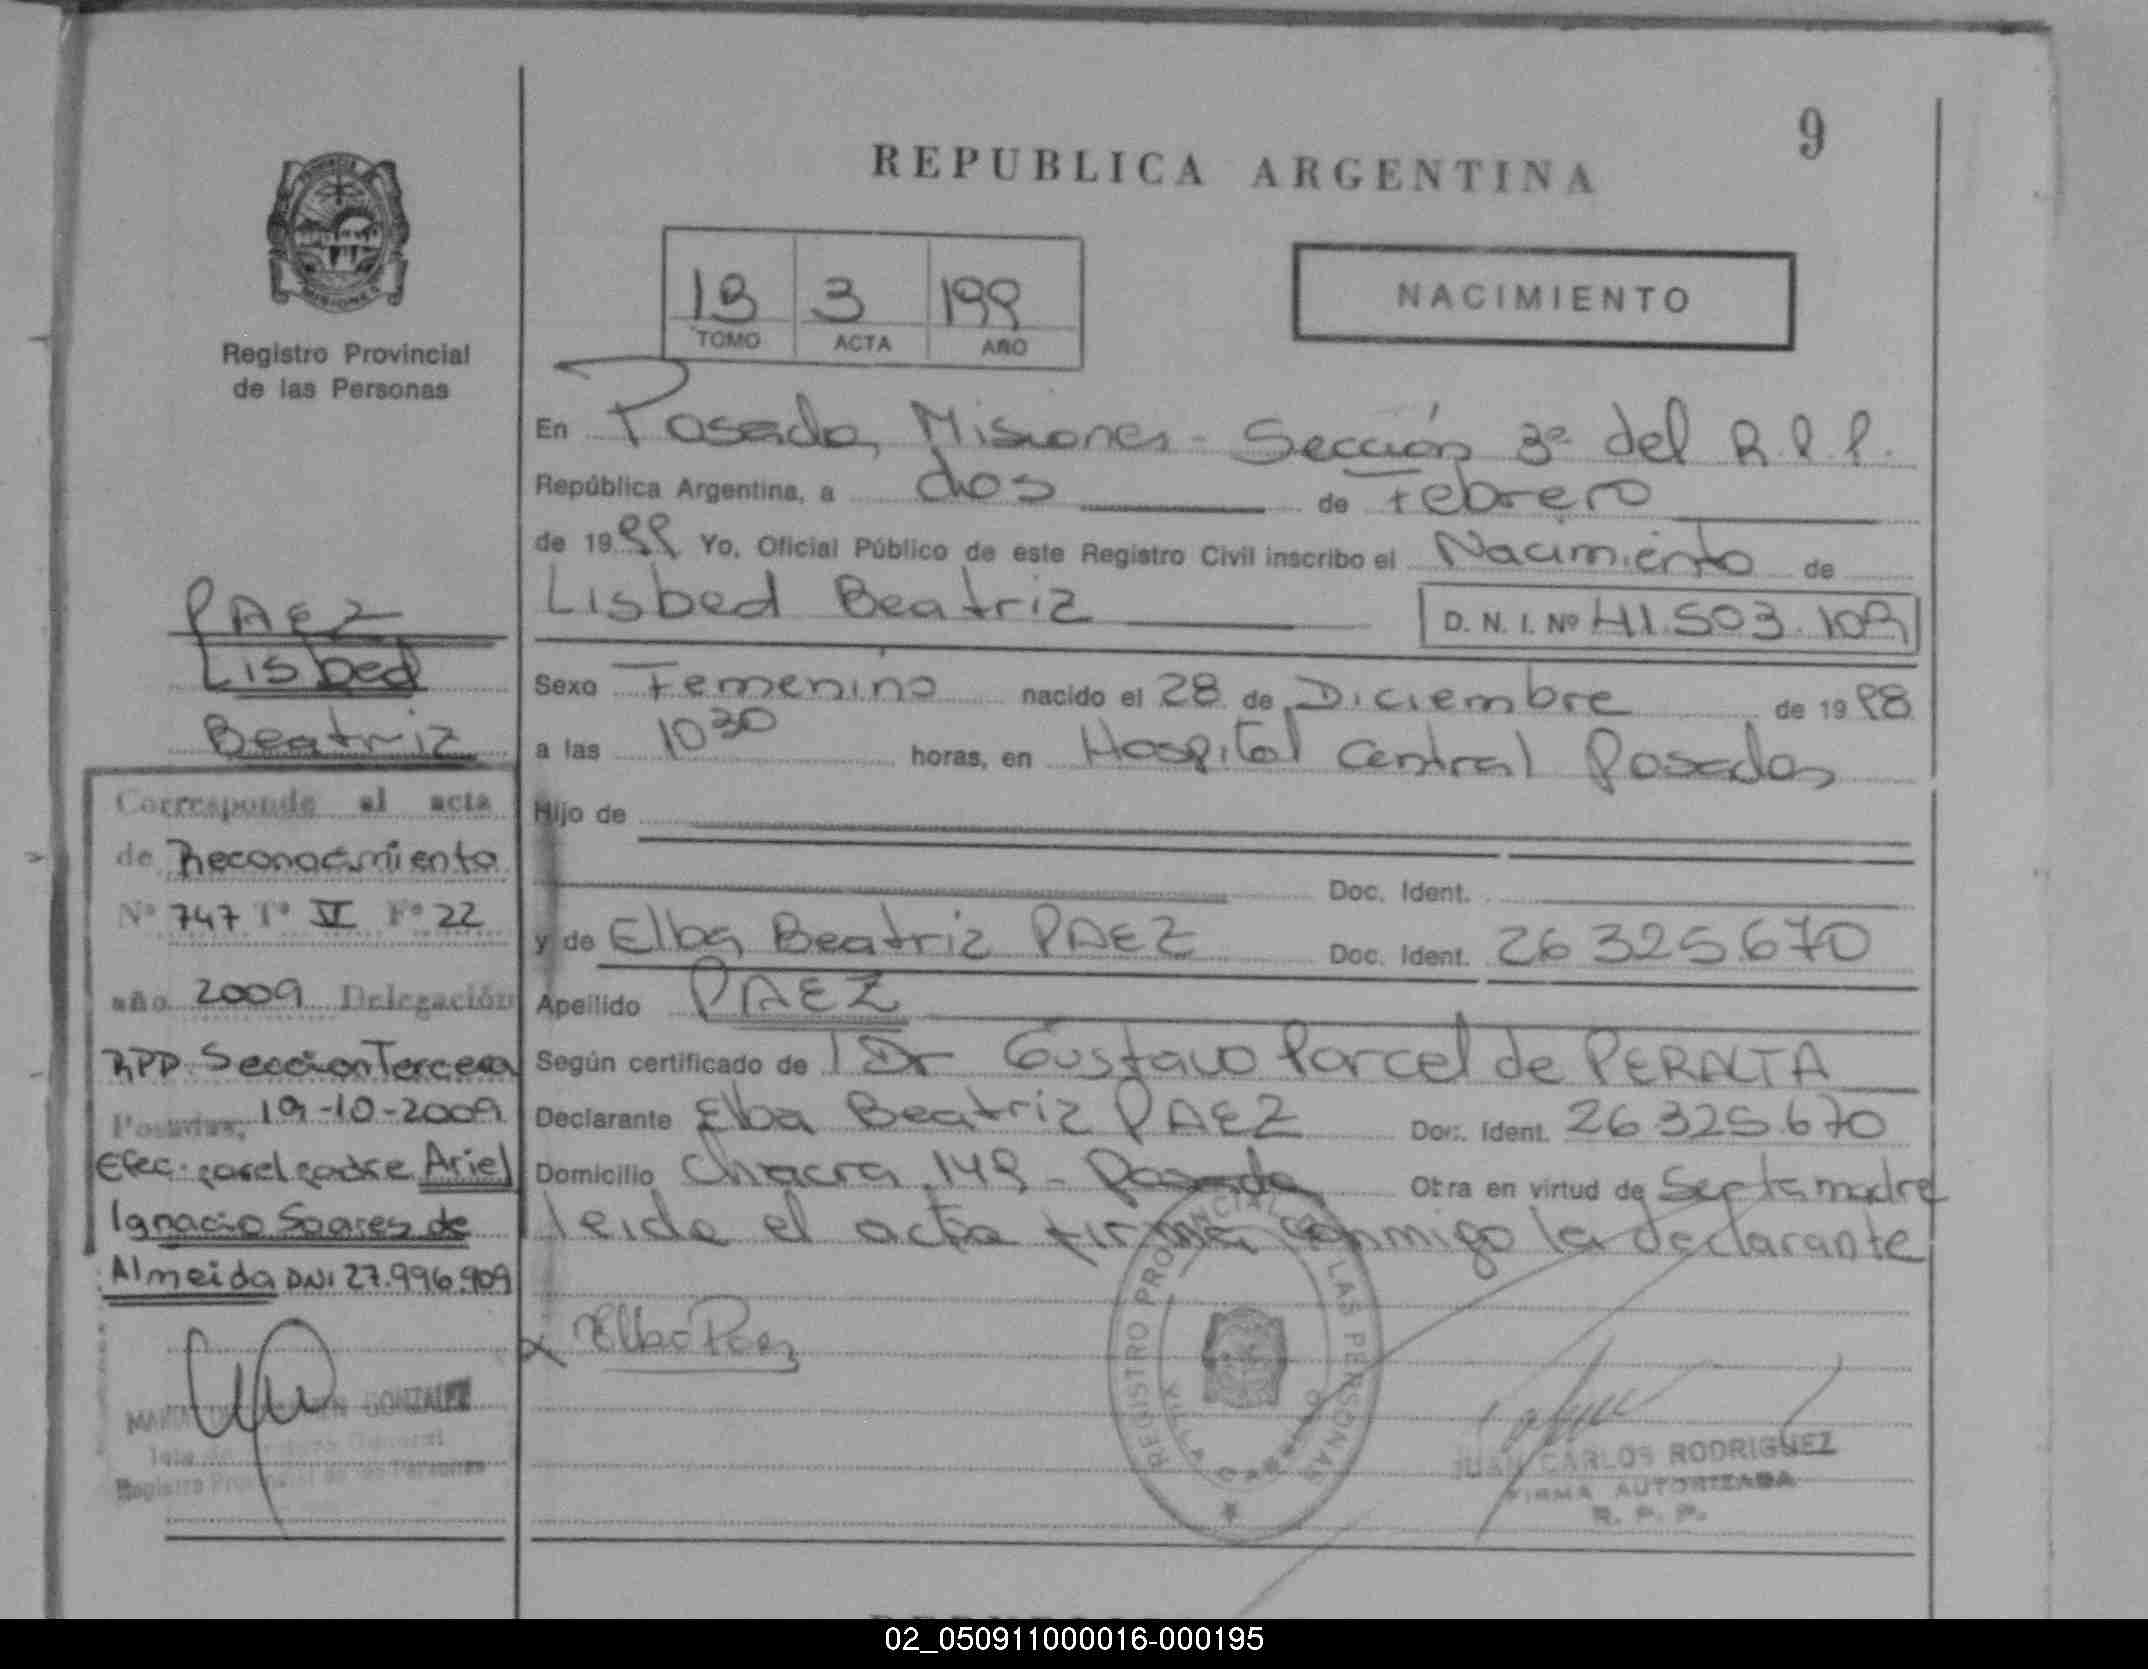 9
REPUBLICA ARGENTINA
Registro Provincial
de las Personas
1B 3 199
TOMO ACTA AÑO
NACIMIENTO
En Posadas, Misiones - Sección 3ª del R.P.P.
República Argentina, a dos de Febrero
de 1999 Yo, Oficial Público de este Registro Civil inscribo el Nacimiento de
Lisbed Beatriz D. N. I. Nº 41.503.109
Sexo Femenino nacido el 28 de Diciembre de 1998
a las 10 30 horas, en Hospital Central Posadas
Hijo de
Doc. Ident.
y de Elba Beatriz PAEZ Doc. Ident. 26 325.670
Apellido PAEZ
Según certificado de Dr Gustavo Porcel de PERALTA
Declarante Elba Beatriz PAEZ Doc. Ident. 26 325 670
Domicilio Chacra 149 - Posadas Otra en virtud de Ser la madre
leida el acta firma conmigo la declarante
X Elba Paez
REGISTRO PROVINCIAL DE LAS PERSONAS
JUAN CARLOS RODRIGUEZ
FIRMA AUTORIZADA
R. P. P.
PAEZ
Lisbed
Beatriz
Corresponde al acta
de Reconocimiento
Nº 747 Tº IV Fº 22
año 2009 Delegación
RPP. Seccion Tercera
Posadas, 19-10-2009
Efec. por el padre Ariel
Ignacio Soares de
Almeida DNI 27.996.909
GONZALEZ
Registro Provincial de las Personas
02_050911000016-000195